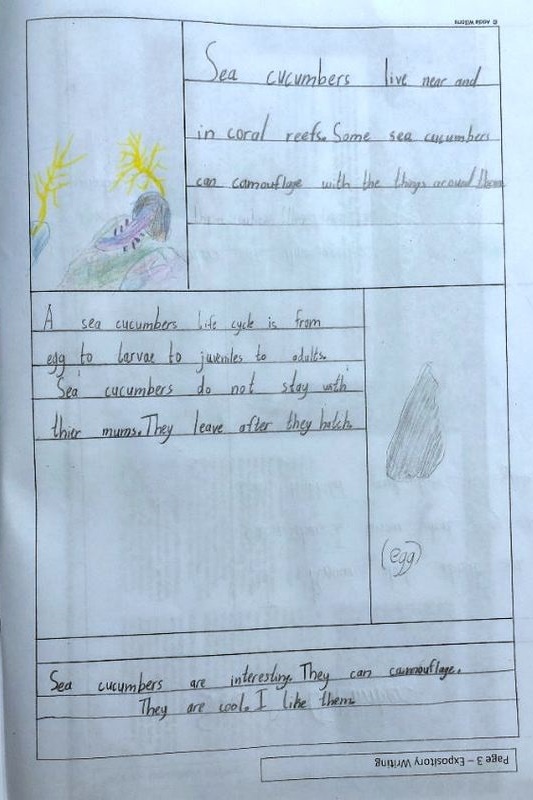 © Adda Wilions
Sea cucumbers live near and
in coral reefs. Some sea cucumbers
can camouflage with the things around them
A sea cucumbers life cycle is from
egg to larvae to juveniles to adults.
Sea cucumbers do not stay with
thier mums. They leave after they hatch.
(egg)
Sea cucumbers are interesting. They can camouflage.
They are cool. I like them
Page 3 – Expository Writing